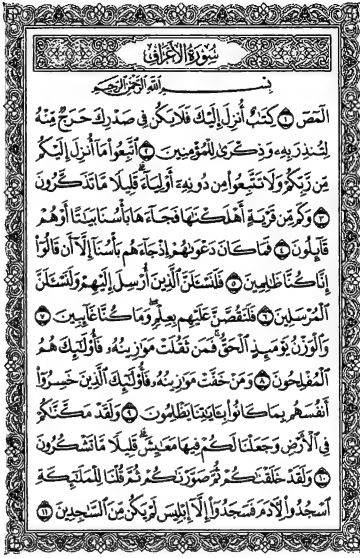 سُورَةُ الأَعْرَافِ
بِسْمِ اللَّهِ الرَّحْمَٰنِ الرَّحِيمِ
الٓمٓصٓ ١ كِتَٰبٌ أُنزِلَ إِلَيْكَ فَلَا يَكُن فِي صَدْرِكَ حَرَجٌ مِّنْهُ
لِتُنذِرَ بِهِۦ وَذِكْرَىٰ لِلْمُؤْمِنِينَ ٢ ٱتَّبِعُوا۟ مَآ أُنزِلَ إِلَيْكُم
مِّن رَّبِّكُمْ وَلَا تَتَّبِعُوا۟ مِن دُونِهِۦٓ أَوْلِيَآءَ ۗ قَلِيلًا مَّا تَذَكَّرُونَ
٣ وَكَم مِّن قَرْيَةٍ أَهْلَكْنَٰهَا فَجَآءَهَا بَأْسُنَا بَيَٰتًا أَوْ هُمْ
قَآئِلُونَ ٤ فَمَا كَانَ دَعْوَىٰهُمْ إِذْ جَآءَهُم بَأْسُنَآ إِلَّآ أَن قَالُوٓا۟
إِنَّا كُنَّا ظَٰلِمِينَ ٥ فَلَنَسْـَٔلَنَّ ٱلَّذِينَ أُرْسِلَ إِلَيْهِمْ وَلَنَسْـَٔلَنَّ
ٱلْمُرْسَلِينَ ٦ فَلَنَقُصَّنَّ عَلَيْهِم بِعِلْمٍ ۖ وَمَا كُنَّا غَآئِبِينَ ٧
وَٱلْوَزْنُ يَوْمَئِذٍ ٱلْحَقُّ ۚ فَمَن ثَقُلَتْ مَوَٰزِينُهُۥ فَأُو۟لَٰٓئِكَ هُمُ
ٱلْمُفْلِحُونَ ٨ وَمَنْ خَفَّتْ مَوَٰزِينُهُۥ فَأُو۟لَٰٓئِكَ ٱلَّذِينَ خَسِرُوٓا۟
أَنفُسَهُم بِمَا كَانُوا۟ بِـَٔايَٰتِنَا يَظْلِمُونَ ٩ وَلَقَدْ مَكَّنَّٰكُمْ
فِي ٱلْأَرْضِ وَجَعَلْنَا لَكُمْ فِيهَا مَعَٰيِشَ ۗ قَلِيلًا مَّا تَشْكُرُونَ
١٠ وَلَقَدْ خَلَقْنَٰكُمْ ثُمَّ صَوَّرْنَٰكُمْ ثُمَّ قُلْنَا لِلْمَلَٰٓئِكَةِ
ٱسْجُدُوا۟ لِءَادَمَ فَسَجَدُوٓا۟ إِلَّآ إِبْلِيسَ لَمْ يَكُن مِّنَ ٱلسَّٰجِدِينَ ١١